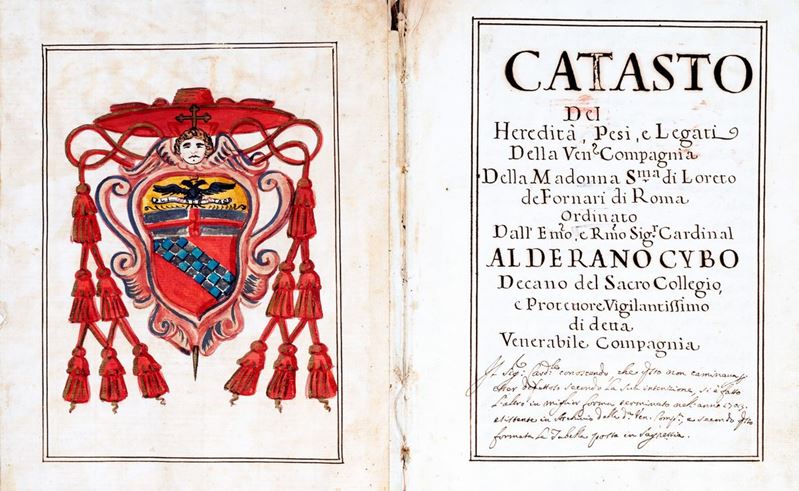 CATASTO
Del
Heredità, Pesi, e Legati
Della Ven.e Compagnia
Della Madonna S.ma di Loreto
de Fornari di Roma
Ordinato
Dall' Emo, e Rmo Sig.r Cardinal
ALDERANO CYBO
Decano del Sacro Collegio,
e Protettore Vigilantissimo
di detta
Venerabile Compagnia
Il Sig.r Card.le conoscendo, che questo non caminava
secondo la sua intenzione, si è fatto
l'altro in miglior forma terminato nell'anno
esistente in Archivio della d.a Ven. Comp.a, e secondo
formata la Tabella posta in Sagrestia.